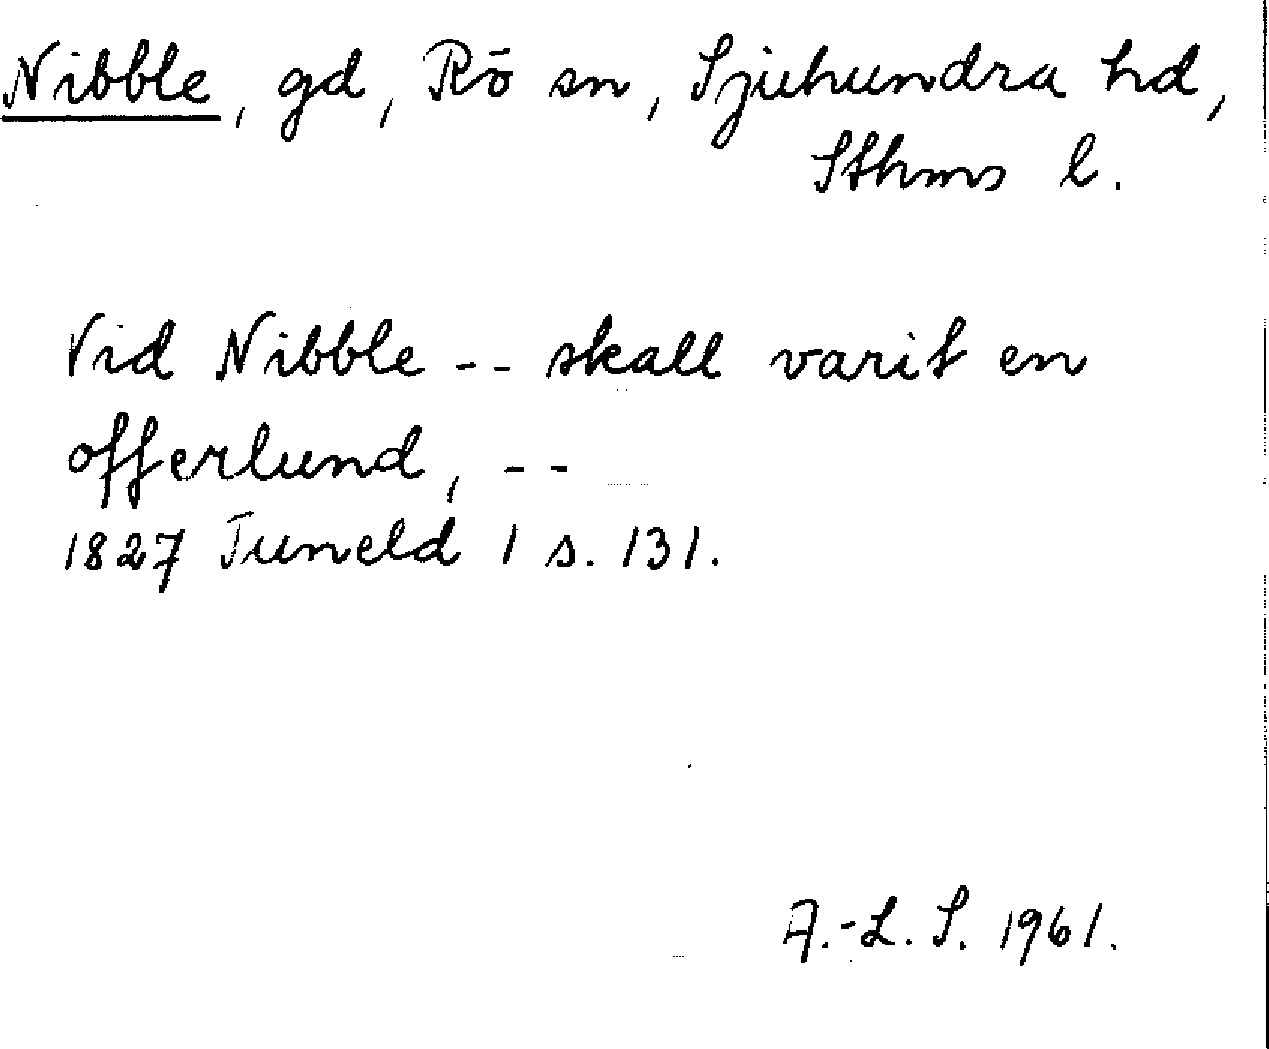 Nibble, gd, Rö sn, Sjuhundra hd,
Sthms l.
Vid Nibble -- skall varit en
offerlund, --
1827 Tuneld 1 s. 131.
A.-L. S. 1961.